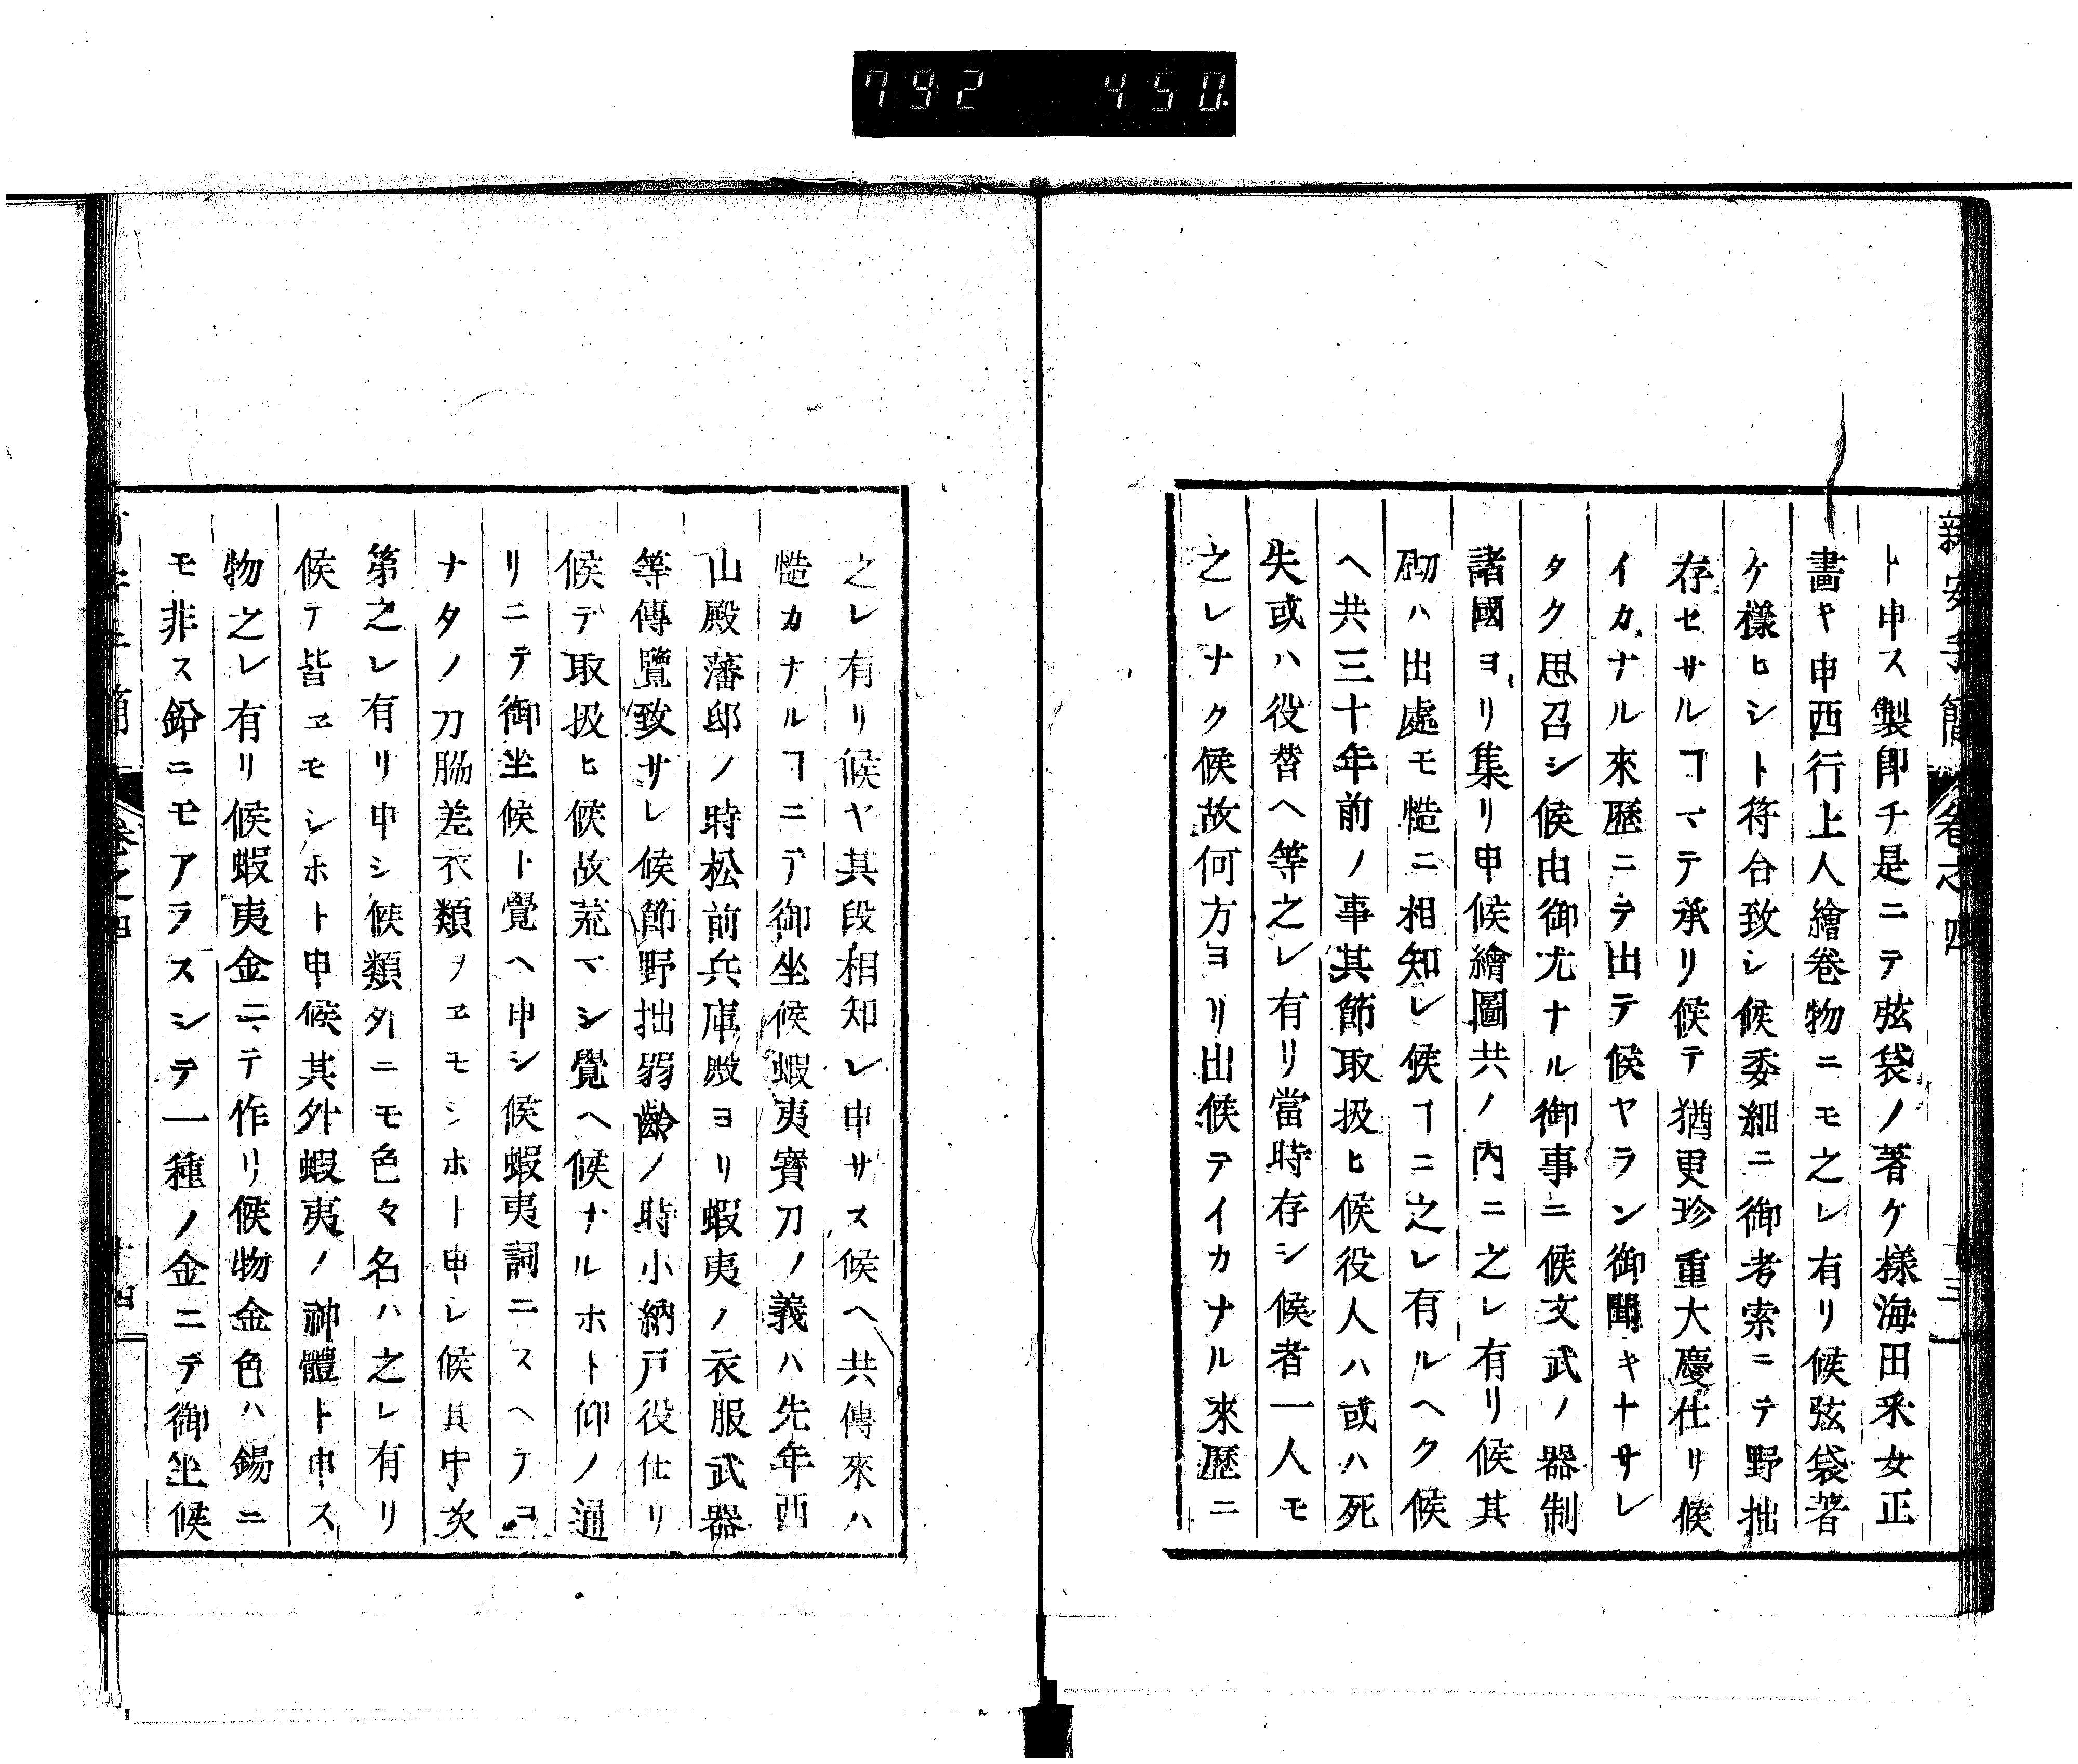 792 450
新安手簡 卷之四
ト申ス製卽チ是ニテ弦袋ノ著ケ樣海田釆女正
畵キ申西行上人繪卷物ニモ之レ有リ候弦袋著
ケ樣ヒシト符合致シ候委細ニ御考索ニテ野拙
存セサルヿマテ承リ候テ猶更珍重大慶仕リ候
イカナル來歷ニテ出テ候ヤラン御聞キナサレ
タク思召シ候由御尤ナル御事ニ候文武ノ器制
諸國ヨリ集リ申候繪圖共ノ內ニ之レ有リ候其
砌ハ出處モ慥ニ相知レ候ヿニ之レ有ルヘク候
ヘ共三十年前ノ事其節取扱ヒ候役人ハ或ハ死
失或ハ役替ヘ等之レ有リ當時存シ候者一人モ
之レナク候故何方ヨリ出候テイカナル來歷ニ
之レ有リ候ヤ其段相知レ申サス候ヘ共傳來ハ
慥カナルヿニテ御坐候蝦夷寶刀ノ義ハ先年西
山殿藩邸ノ時松前兵庫殿ヨリ蝦夷ノ衣服武器
等傳覽致サレ候節野拙弱齡ノ時小納戸役仕リ
候テ取扱ヒ候故荒マシ覺ヘ候ナルホト仰ノ通
リニテ御坐候ト覺ヘ申シ候蝦夷詞ニスヘテヨ
ナタノ刀脇差衣類ヲヱモシホト申レ候其中次
第之レ有リ申シ候類外ニモ色々名ハ之レ有リ
候テ皆ヱモシホト申候其外蝦夷ノ神體ト申ス
物之レ有リ候蝦夷金ニテ作リ候物金色ハ錫ニ
モ非ス鉛ニモアラスシテ一種ノ金ニテ御坐候
卷之四